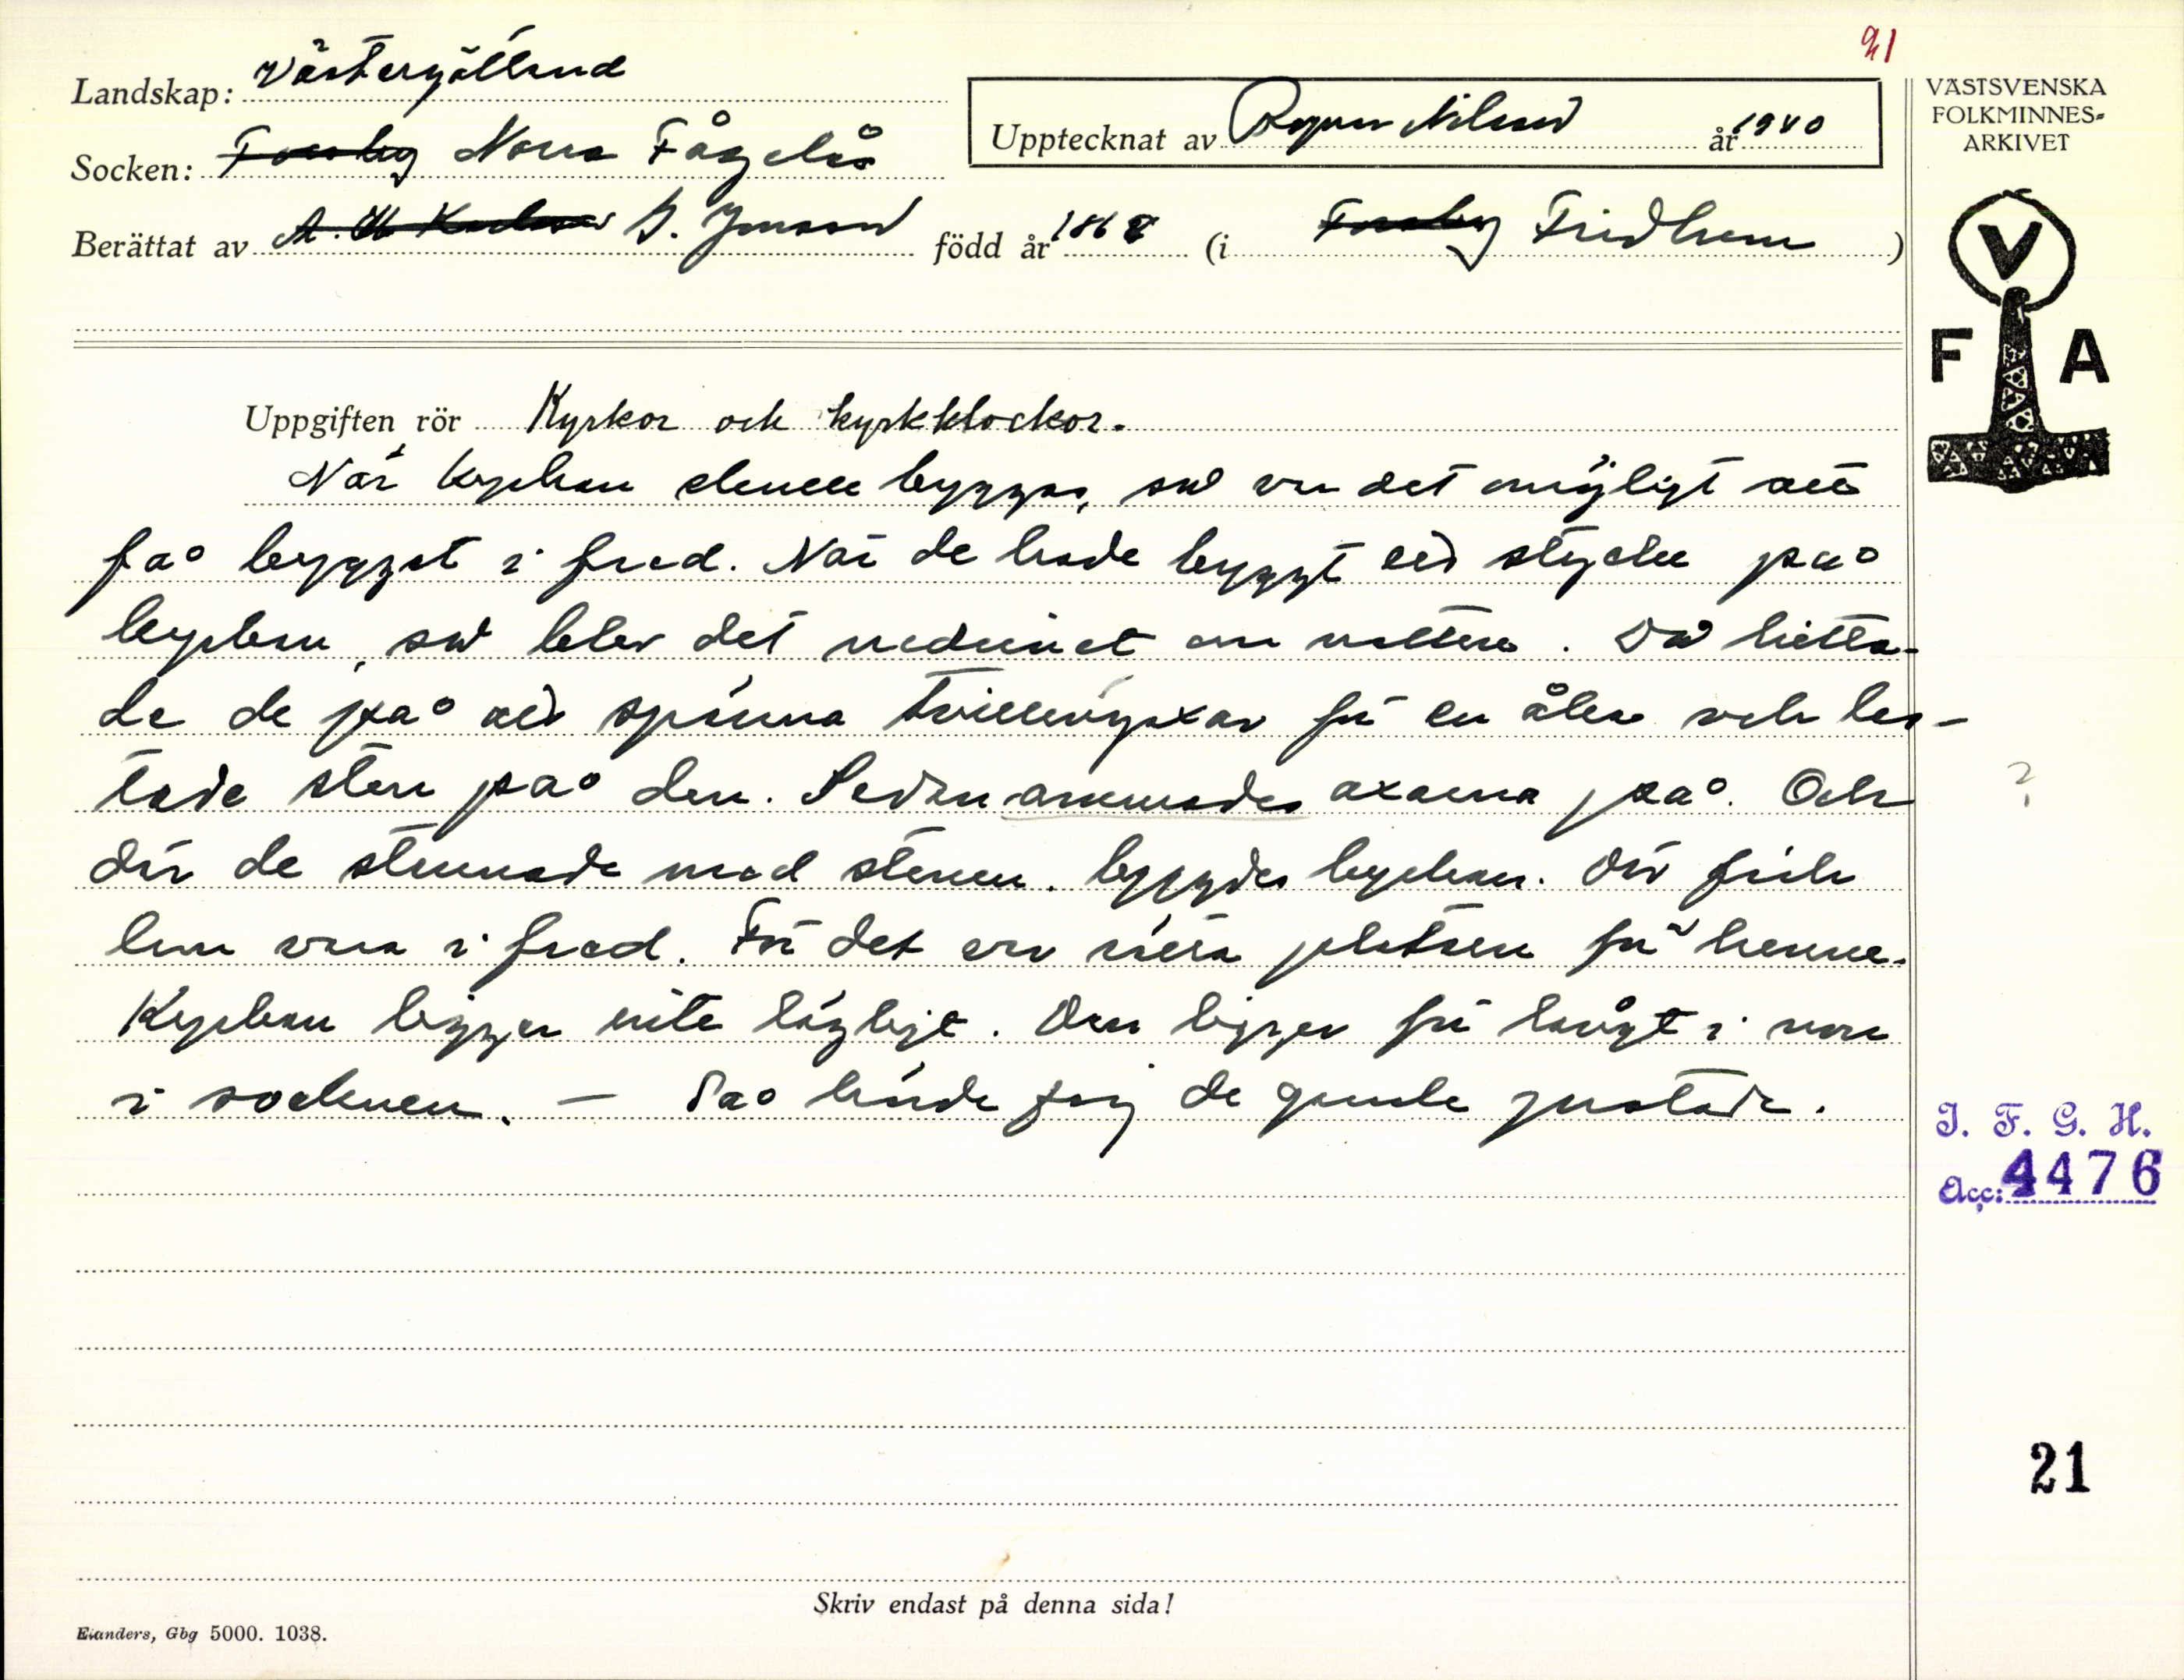 21
Landskap: Västergötland
Socken: Forsby Norra Fågelås
Upptecknat av Ragnar Nilsson år 1940
VÄSTSVENSKA
FOLKMINNES-
ARKIVET
Berättat av A. Karlsson J. Jonsson född år 1868 (i Forsby Fridhem )
V
F A
Uppgiften rör Kyrkor och kyrkklockor.
När kyrkan skulle byggas, så var det omöjligt att
få byggat i fred. När de hade byggt ett stycke på
kyrkan, så blev det nedrivet om natten. Då hitta-
de de på att spänna tvillingoxar för en åka och las-
tade sten på den. Sedan oxarna på. Och
där de stannade med stenen. byggdes kyrkan. Där fick
hon vara i fred. För det var rätta platsen för henne.
Kyrkan ligger inte lägligt. Den ligger för långt i norr
i socknen. – Så hörde jag de gamle pratade.
?
I. F. G. H.
Acc: 4476
21
Skriv endast på denna sida!
Elanders, Gbg 5000. 1038.